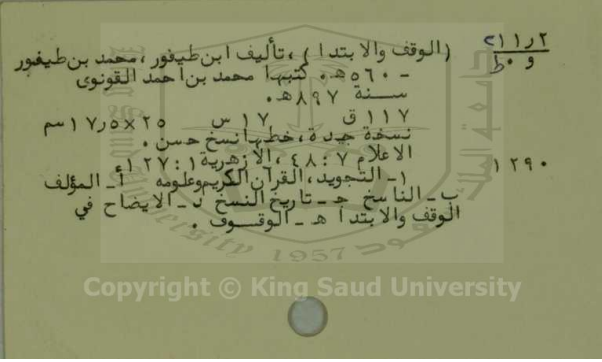 ٢١١٫٢
و ٠ ط
(الوقف والابتدا) ، تأليف ابن طيفور ، محمد بن طيفور
- ٥٦٠ هـ . كتبها محمد بن احمد القونوى
سـنة ٨٩٧ هـ .
١١٧ ق ١٧ س ٢٥ × ١٧٫٥ سم
نسخة جيدة ، خطها نسخ حسن .
الاعلام ٧ : ٤٨ ، الازهرية ١ : ١٢٧
١٢٩٠
١- التجويد ، القرآن الكريم وعلومه أ ـ المؤلف
ب ـ الناسخ جـ ـ تاريخ النسخ د ـ الايضاح في
الوقف والابتدا هـ ـ الوقـوف .
1957
Copyright © King Saud University